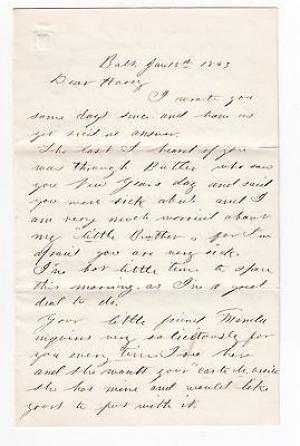 Balt. Jan 18th 1863
Dear Harry
I wrote you
some days since and have as
yet rec'd no answer.
The last I heard of you
was through Butler who saw
you New Years day and said
you were sick abed and I
am very much worried about
my "little Brother", for I'm
afraid you are very sick.
I've but little time to spare
this morning as I've a good
deal to do.
Your little friend
inquires very solicitously for
you every time I see her
and she wants your "carte de visite
she has mine and would like
yours to put with it.